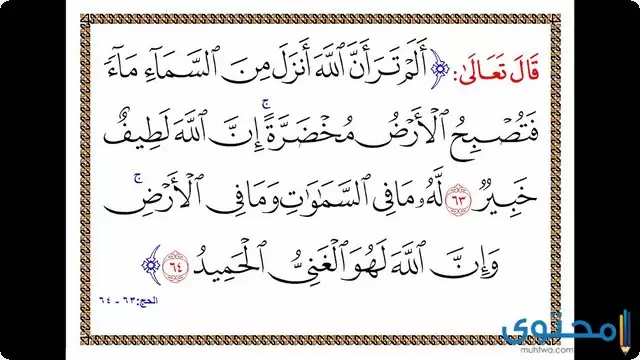 قَالَ تَعَالَىٰ: ﴿ أَلَمْ تَرَ أَنَّ ٱللَّهَ أَنزَلَ مِنَ ٱلسَّمَآءِ مَآءً
فَتُصْبِحُ ٱلْأَرْضُ مُخْضَرَّةً ۚ إِنَّ ٱللَّهَ لَطِيفٌ
خَبِيرٌ ٦٣ لَّهُۥ مَا فِى ٱلسَّمَـٰوَٰتِ وَمَا فِى ٱلْأَرْضِ ۚ
وَإِنَّ ٱللَّهَ لَهُوَ ٱلْغَنِىُّ ٱلْحَمِيدُ ٦٤ ﴾
الحج: ٦٣ - ٦٤
محتوى
muhtwa.com